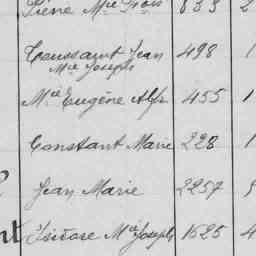 Pierre Mie Frois 833 2
Toussaint Jean 498 1
Mie Joseph
Mie Eugène Alp. 455 1
Constant Marie 228 1
Jean Marie 2257
nt Isidore Mie Joseph 1525 4